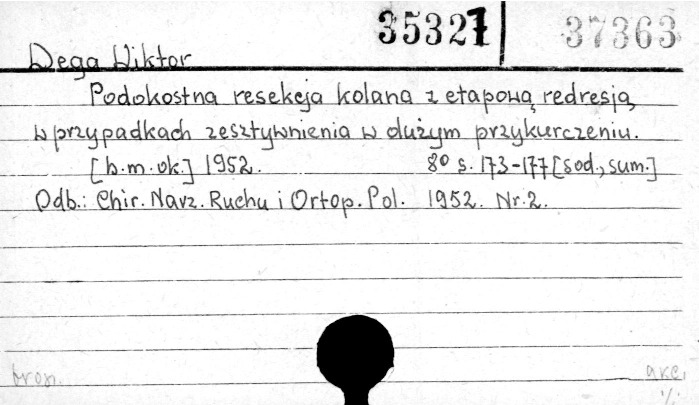 35321 37363
Dega Wiktor
Podokostna resekcja kolana z etapową redresją
w przypadkach zesztywnienia w dużym przykurczeniu.
[b.m.ok.] 1952. 8° s. 173-177 [sod., sum.]
Odb.: Chir. Narz. Ruchu i Ortop. Pol. 1952. Nr. 2.
brosz. akc.